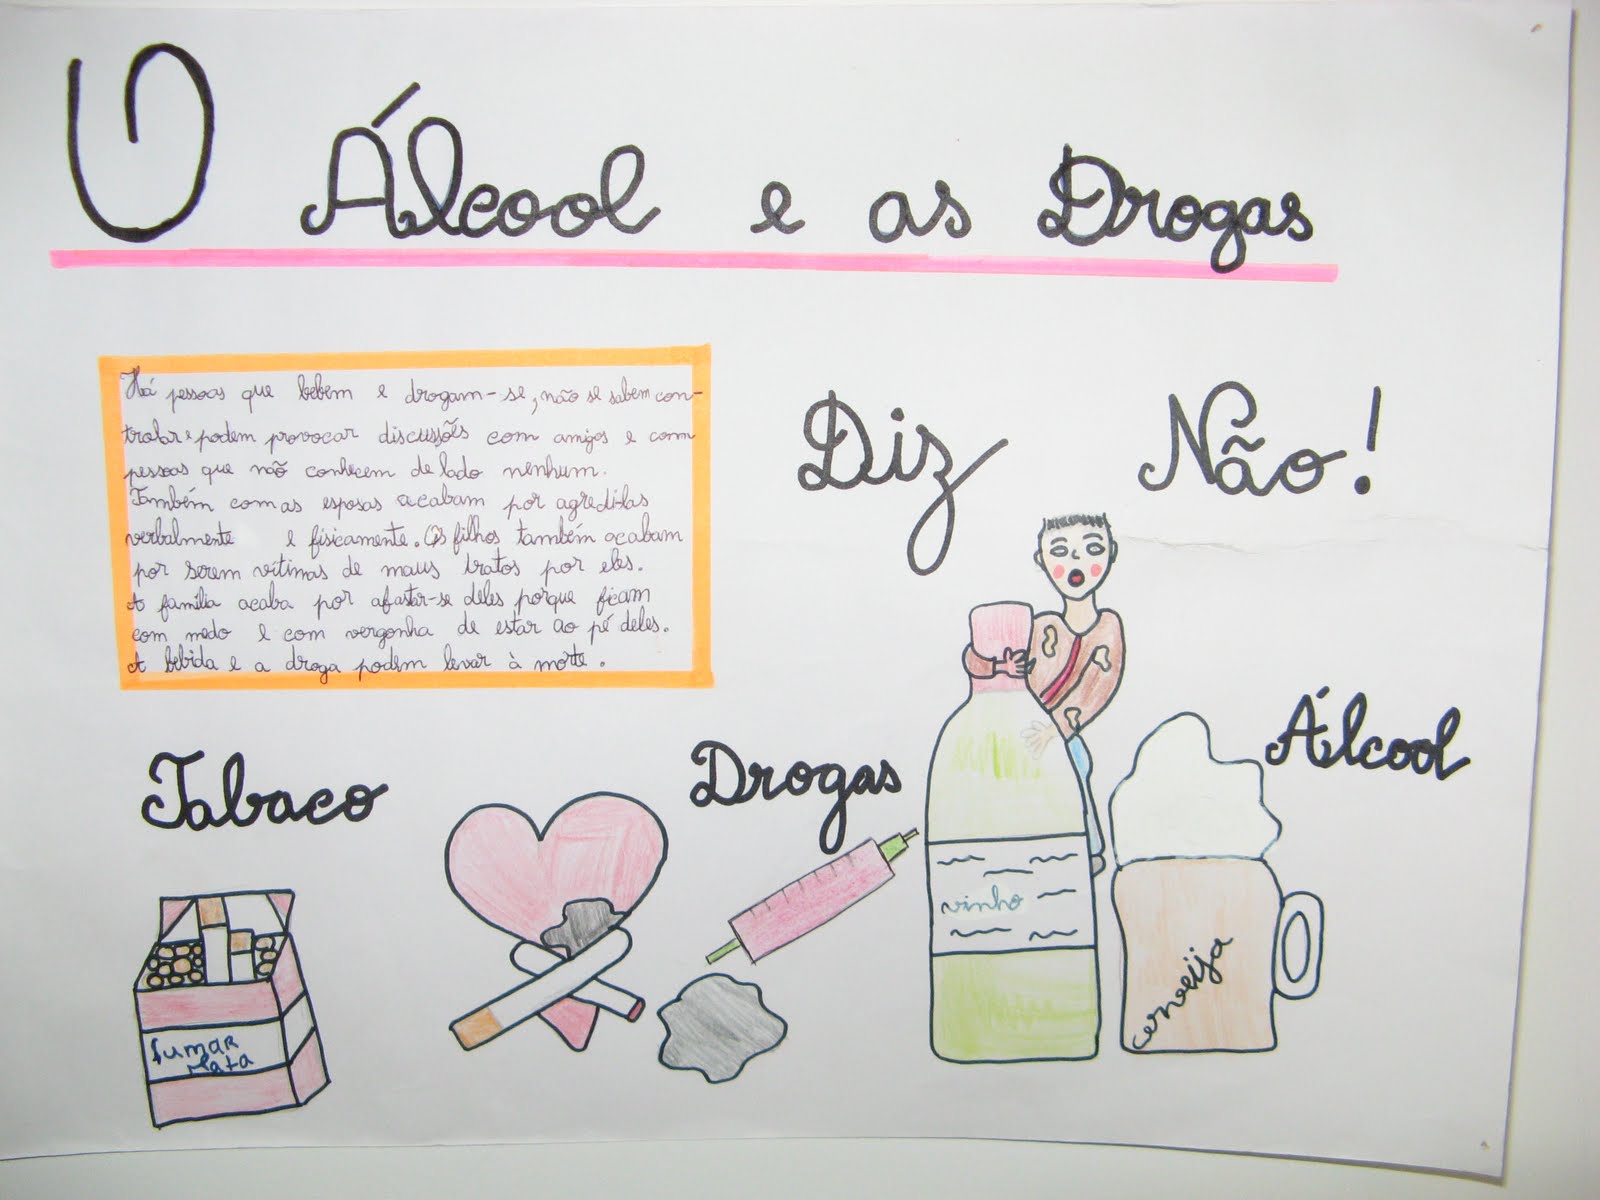 O Álcool e as Drogas
Há pessoas que bebem e drogam-se, não se sabem con-
trolar e podem provocar discussões com amigos e com
pessoas que não conhecem de lado nenhum.
Também com as esposas acabam por agredi-las
verbalmente e fisicamente. Os filhos também acabam
por serem vítimas de maus tratos por eles.
A família acaba por afastar-se deles porque ficam
com medo e com vergonha de estar ao pé deles.
A bebida e a droga podem levar à morte.
Diz Não!
Tabaco
Drogas
Álcool
fumar
Mata
vinho
cerveija